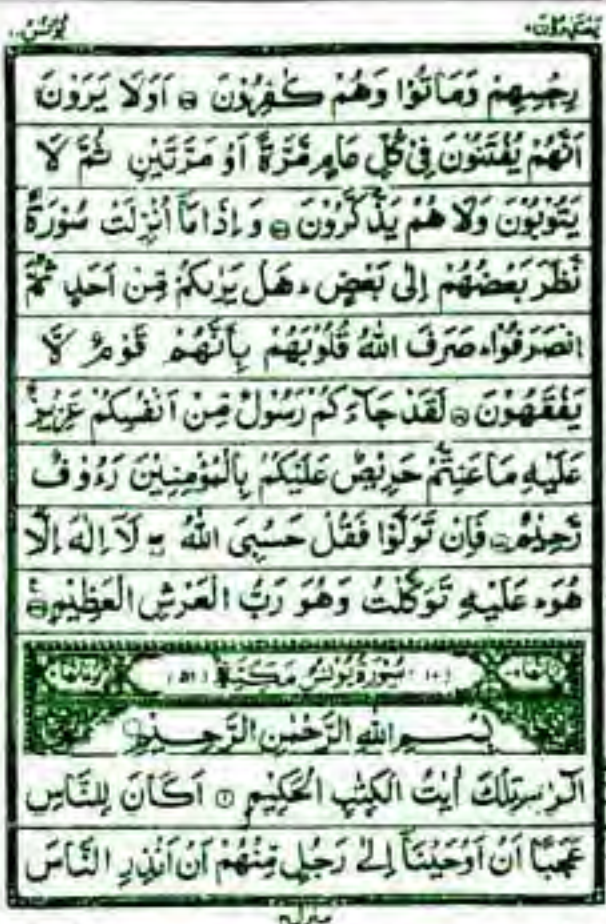 یعتذرون ۱۱ یونس ۱۰
رِجْسِهِمْ وَمَاتُوْا وَهُمْ كٰفِرُوْنَ ۝ اَوَلَا يَرَوْنَ
اَنَّهُمْ يُفْتَنُوْنَ فِيْ كُلِّ عَامٍ مَّرَّةً اَوْ مَرَّتَيْنِ ثُمَّ لَا
يَتُوْبُوْنَ وَلَا هُمْ يَذَّكَّرُوْنَ ۝ وَاِذَا مَاۤ اُنْزِلَتْ سُوْرَةٌ
نَّظَرَ بَعْضُهُمْ اِلٰى بَعْضٍ ؕ هَلْ يَرٰىكُمْ مِّنْ اَحَدٍ ثُمَّ
انْصَرَفُوْا ؕ صَرَفَ اللّٰهُ قُلُوْبَهُمْ بِاَنَّهُمْ قَوْمٌ لَّا
يَفْقَهُوْنَ ۝ لَقَدْ جَآءَكُمْ رَسُوْلٌ مِّنْ اَنْفُسِكُمْ عَزِيْزٌ
عَلَيْهِ مَا عَنِتُّمْ حَرِيْصٌ عَلَيْكُمْ بِالْمُؤْمِنِيْنَ رَءُوْفٌ
رَّحِيْمٌ ۝ فَاِنْ تَوَلَّوْا فَقُلْ حَسْبِيَ اللّٰهُ ۖ لَاۤ اِلٰهَ اِلَّا
هُوَ ؕ عَلَيْهِ تَوَكَّلْتُ وَهُوَ رَبُّ الْعَرْشِ الْعَظِيْمِ ۝
(۱۰) سُوْرَةُ يُوْنُسَ مَكِّيَّةٌ (۵۱)
بِسْمِ اللّٰهِ الرَّحْمٰنِ الرَّحِيْمِ
الٓرٰ ۫ تِلْكَ اٰيٰتُ الْكِتٰبِ الْحَكِيْمِ ۝ اَكَانَ لِلنَّاسِ
عَجَبًا اَنْ اَوْحَيْنَاۤ اِلٰى رَجُلٍ مِّنْهُمْ اَنْ اَنْذِرِ النَّاسَ